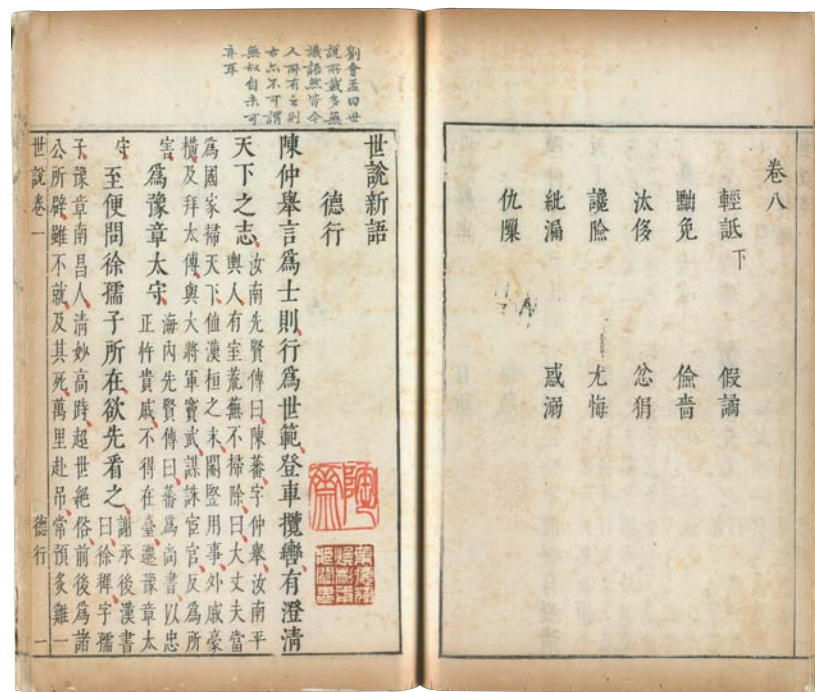 卷八
輕詆下 假譎
黜免 儉嗇
汰侈 忿狷
讒險 尤悔
紕漏 惑溺
仇隟
劉會孟曰世
說所載多無
識語然皆今
人所有之則
古亦不可謂
無奴自未可
弃耳
世說新語
德行
陳仲舉言爲士則行爲世範登車攬轡有澄清
天下之志
汝南先賢傳曰陳蕃字仲舉汝南平
輿人有室荒蕪不掃除曰大丈夫當
爲國家掃天下值漢桓之末閹豎用事外戚豪
橫及拜太傅與大將軍竇武謀誅宦官反爲所
害
爲豫章太守
海內先賢傳曰蕃爲尚書以忠
正忤貴戚不得在臺遷豫章太
守
至便問徐孺子所在欲先看之
謝承後漢書
曰徐穉字孺
子豫章南昌人清妙高時超世絕俗前後爲諸
公所辟雖不就及其死萬里赴吊常預炙雞一
世說卷一 德行 一
陶齋